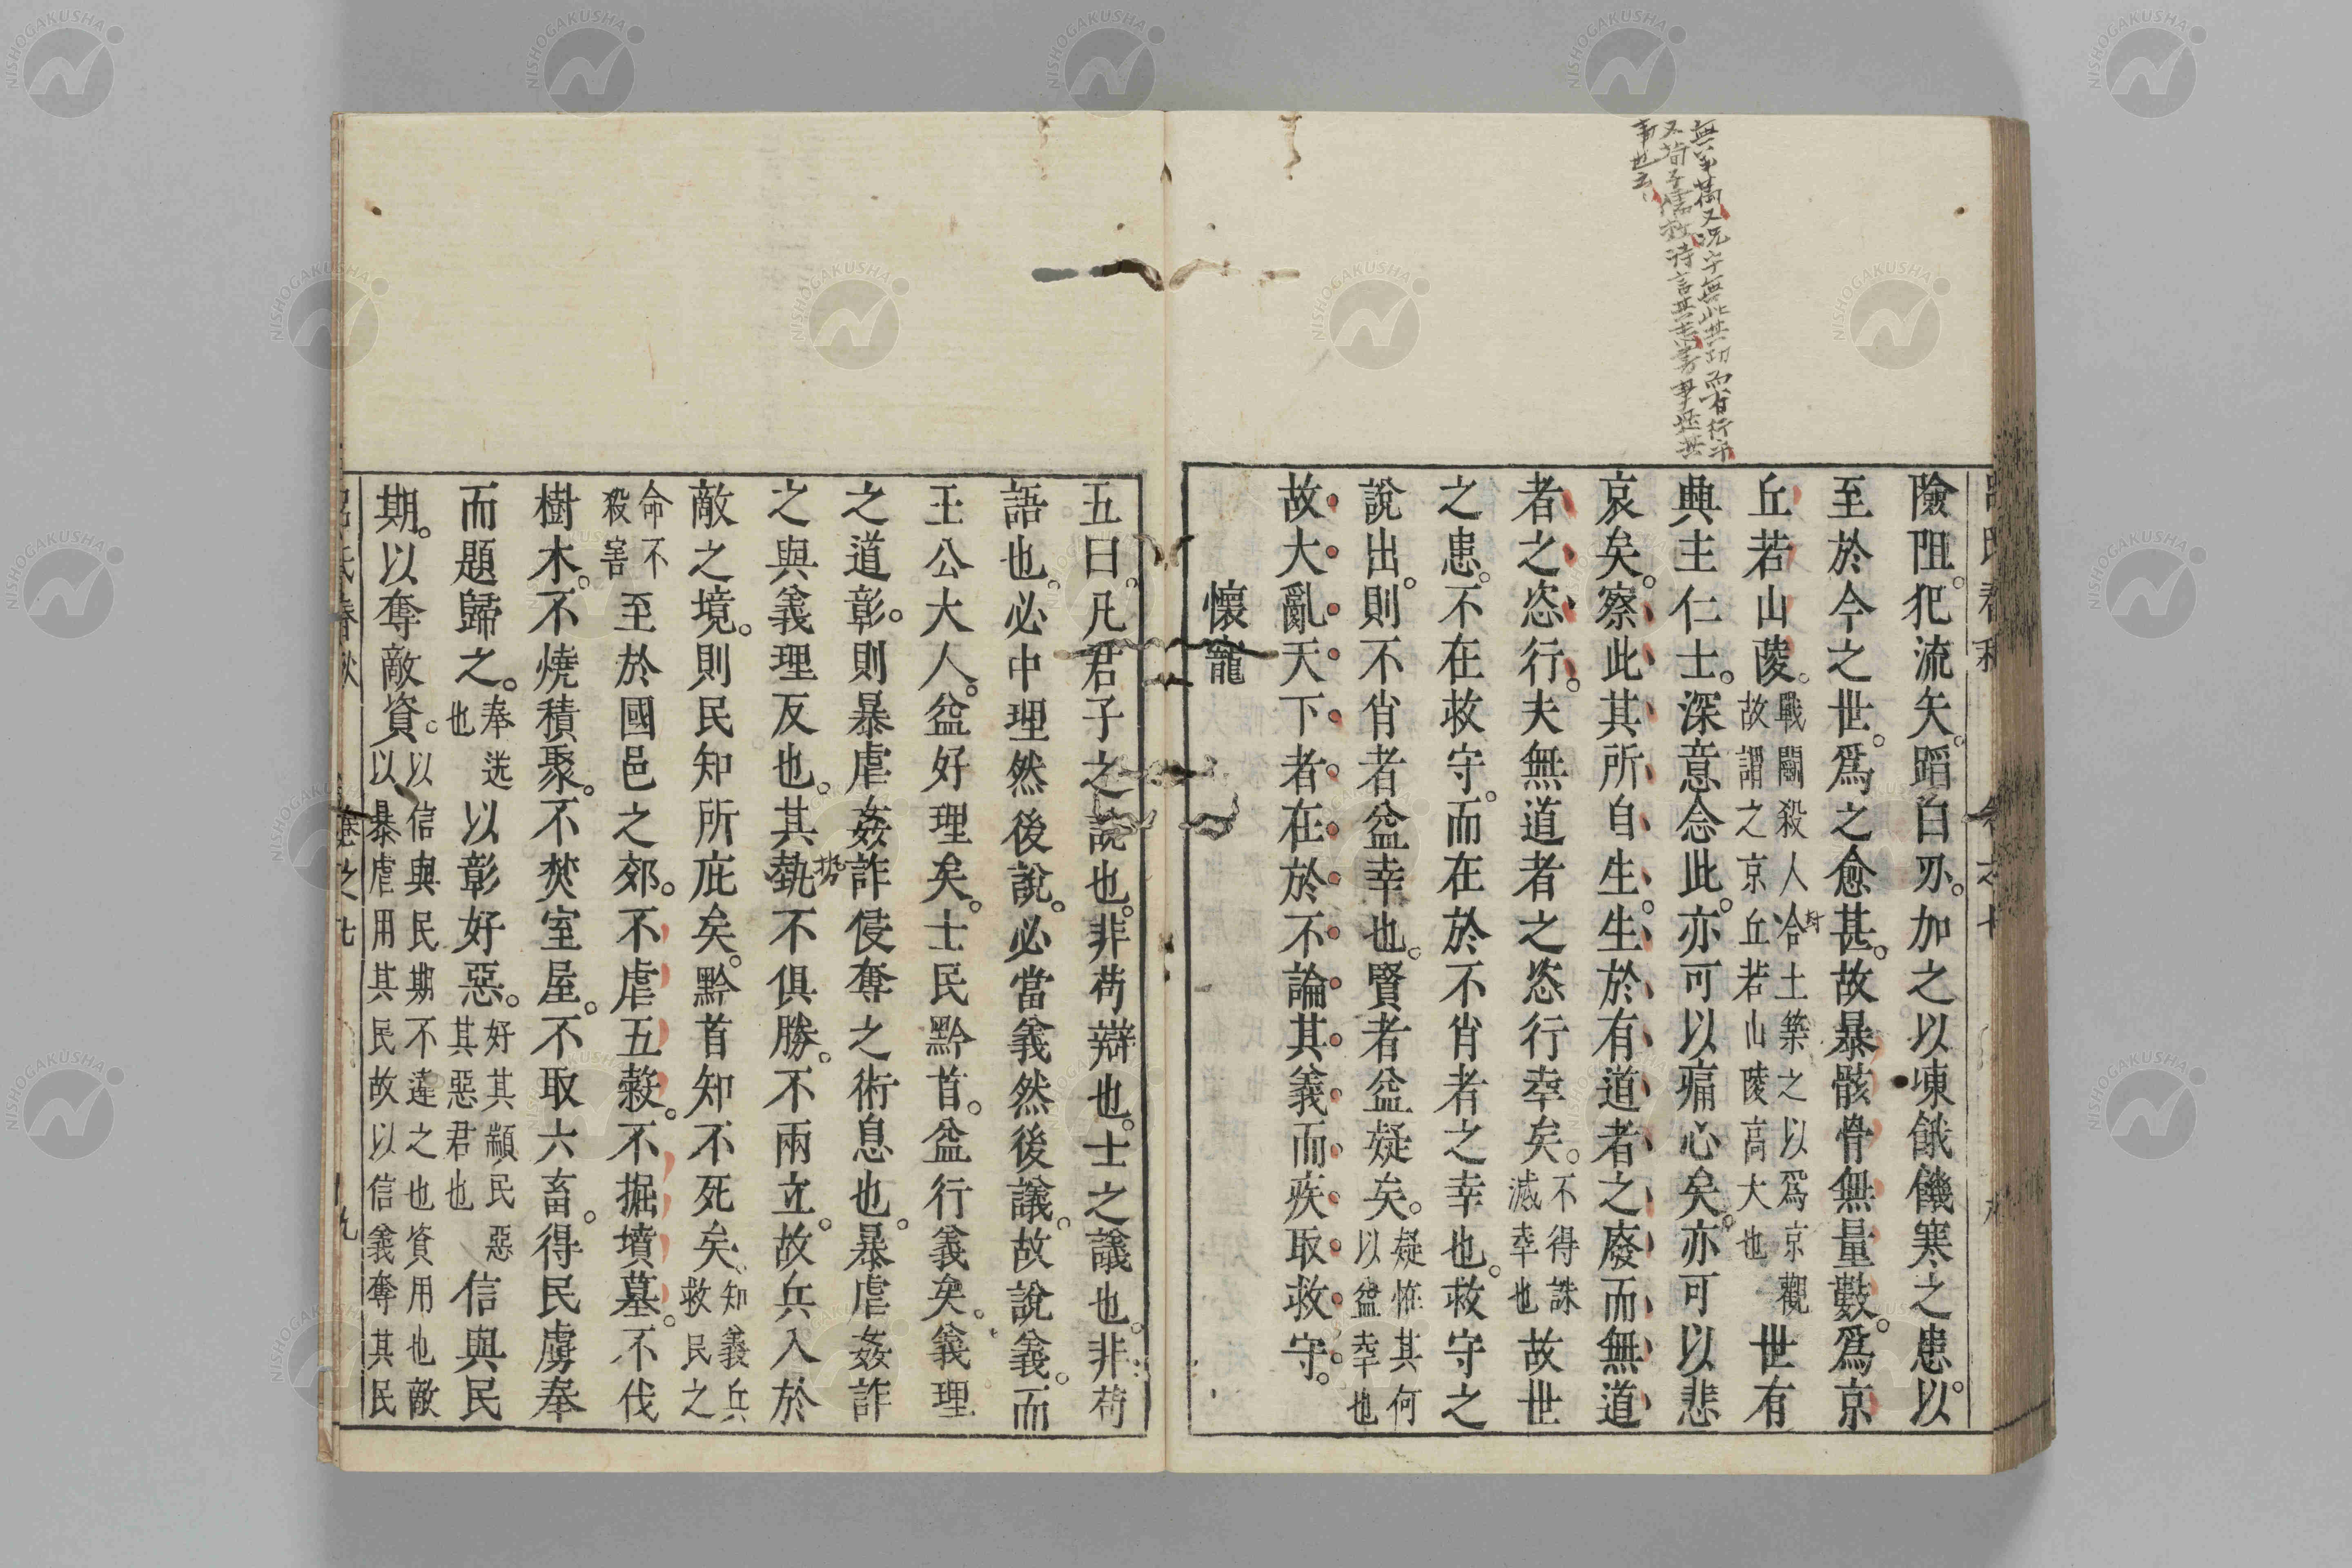 險阻。犯流矢。蹈白刃。加之以凍餓饑寒之患。以
至於今之世。爲之愈甚。故暴骸骨無量數。爲京
丘若山陵。戰鬭殺人合土築之以爲京觀
故謂之京丘若山陵高大也世有
興主仁士。深意念此。亦可以痛心矣。亦可以悲
哀矣。察此其所自生。生於有道者之廢而無道
者之恣行。夫無道者之恣行幸矣。不得誅
滅幸也故世
之患。不在救守。而在於不肖者之幸也。救守之
說出。則不肖者益幸也。賢者益疑矣。疑怪其何
以益幸也
故大亂天下者在於不論其義而疾取救守。
懷寵
五曰。凡君子之說也。非苟辯也。士之議也。非苟
語也。必中理然後說。必當義然後議。故說義。而
王公大人。益好理矣。士民黔首。益行義矣。義理
之道彰。則暴虐姦詐侵奪之術息也。暴虐姦詐
之與義理反也。其埶勢不俱勝。不兩立。故兵入於
敵之境。則民知所庇矣。黔首知不死矣。知義兵
救民之
命不
殺害至於國邑之郊。不虐五穀。不掘墳墓。不伐
樹木。不燒積聚。不焚室屋。不取六畜。得民虜奉
而題歸之。奉送
也以彰好惡。好其顓民惡
其惡君也信與民
期。以奪敵資。以信與民期不違之也資用也敵
以暴虐用其民故以信義奪其民
呂氏春秋 卷之七 九
NISHOGAKUSHA